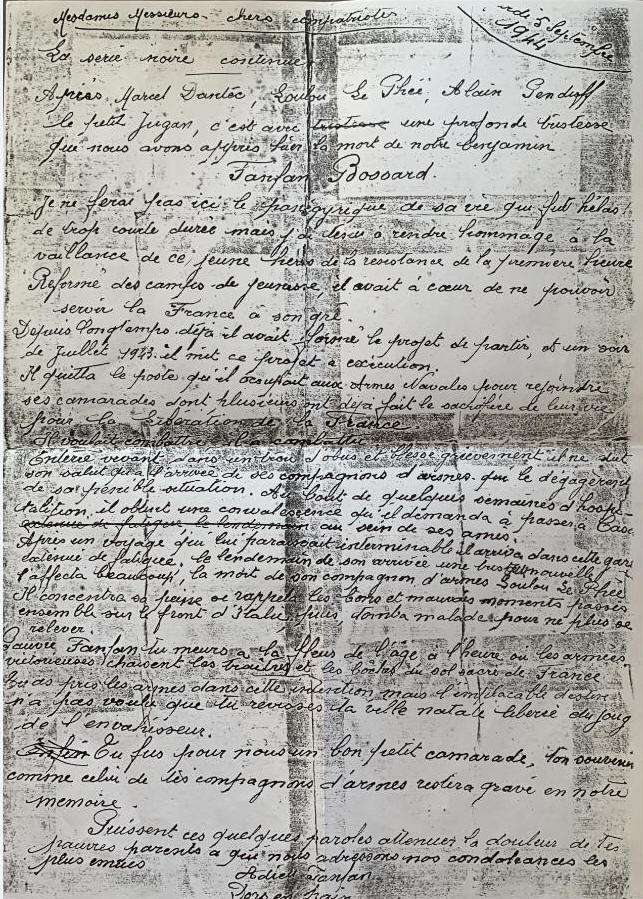 Mesdames Messieurs chers compatriotes
rdi 5 Septembre
1944
La serie noire continue
Après Marcel Dantec, Loulou Le Phée, Alain Gendroff
le petit Jugan, c'est avec tristesse une profonde tristesse
que nous avons appris hier la mort de notre benjamin
Fanfan Bossard.
Je ne ferai pas ici le panégyrique de sa vie qui fut hélas!
de trop courte durée mais j'ai désiré rendre hommage à la
vaillance de ce jeune heros de la resistance de la première heure
Reformé des camps de jeunesse, il avait à cœur de ne pouvoir
servir la France à son gré.
Depuis longtemps déjà il avait formé le projet de partir, et un soir
de Juillet 1943 il mit ce projet à exécution.
Il quitta le poste qu'il occupait aux Armes Navales pour rejoindre
ses camarades dont plusieurs ont déjà fait le sacrifice de leur vie
pour la Libération de la France
Il voulait combattre il a combattu
Enterré vivant dans un trou d'obus et blessé grièvement il ne dut
son salut qu'à l'arrivée de ses compagnons d'armes qui le dégagèrent
de sa pénible situation. Au bout de quelques semaines d'hospi-
talition, il obtint une convalescence qu'il demanda à passer à Casa
extenué de fatigue le lendemain au sein de ses amis.
Après un voyage qui lui paraissait interminable il arriva dans cette gare
extenué de fatigue. le lendemain de son arrivée une triste nouvelle
l'affecta beaucoup, la mort de son compagnon d'armes Loulou Le Phée
Il concentra sa peine se rappela les bons et mauvais moments passés
ensemble sur le front d'Italie puis, tomba malade pour ne plus se
relever
Pauvre Fanfan tu meurs à la fleur de l'âge à l'heure où les armées
victorieuses chassent les traitres et les boches du sol sacré de France
Tu as pris les armes dans cette intention mais l'implacable destin
n'a pas voulu que tu revoisses ta ville natale liberée du joug
de l'envahisseur.
Enfin Tu fus pour nous un bon petit camarade, ton souvenir
comme celui de tes compagnons d'armes restera gravé en notre
mémoire.
Puissent ces quelques paroles attenuer la douleur de tes
pauvres parents à qui nous adressons nos condoléances les
plus emues
Adieu Fanfan
Dors en paix